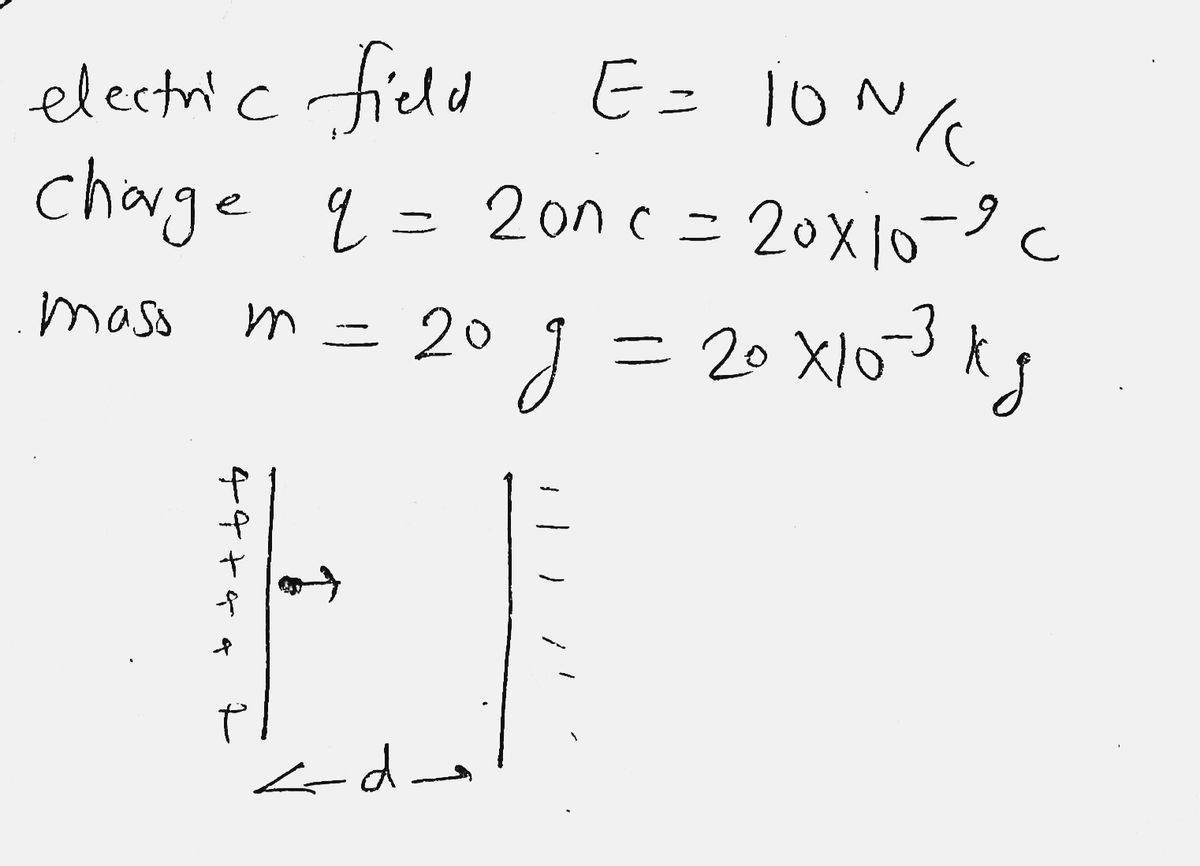 electric field E = 10 N/C
charge q = 20nc = 20x10-9 c
mass m = 20 g = 20 x10-3 kg
+ -
+ -
+ -
+ -
+ -
+
<- d ->